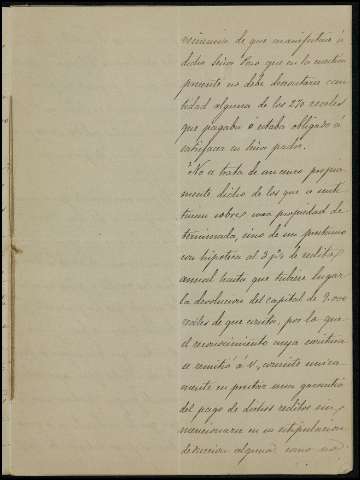 de que manifestase á
dicho Señor Toro que en la cuestion
presente no debe descontarse can
tidad alguna de los 270 reales
que pagaba ó estaba obligado á
satisfacer su Señor padre.
No se trata de un censo propia
mente dicho de los que
sobre una propiedad de
terminada, sino de un prestamo
con hipoteca al 3 p% de reditos
anual hasta que tubiese lugar
la devolucion del capital de 9.000
reales de que consta, por lo que
el reconocimiento cuya escritura
se remitió á V., consiste unica
mente en prestar una garantia
del pago de dichos reditos sin
mencionarse en su estipulacion
deduccion alguna como